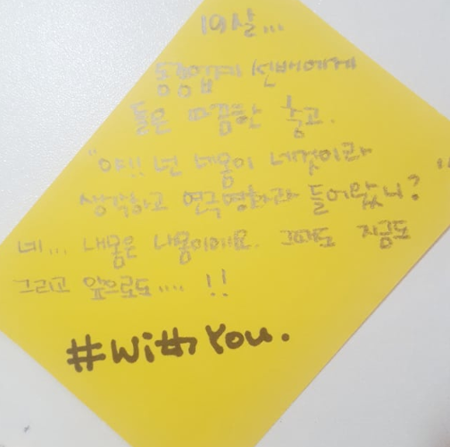 19살...
동종업계 선배에게
들은 따끔한 충고.
"야!! 넌 네몸이 네것이라
생각하고 연극영화과 들어왔니? "
네... 내몸은 내몸이에요. 그때도 지금도
그리고 앞으로도.... !!
#With You.